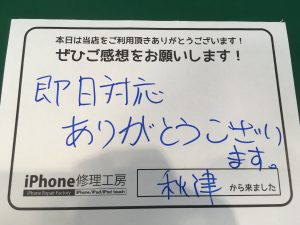 本日は当店をご利用頂きありがとうございます！
ぜひご感想をお願いします！
即日対応
ありがとうござい
ます。
iPhone修理工房
iPhone Repair Factory iPhone/iPad/iPod touch
秋津 から来ました